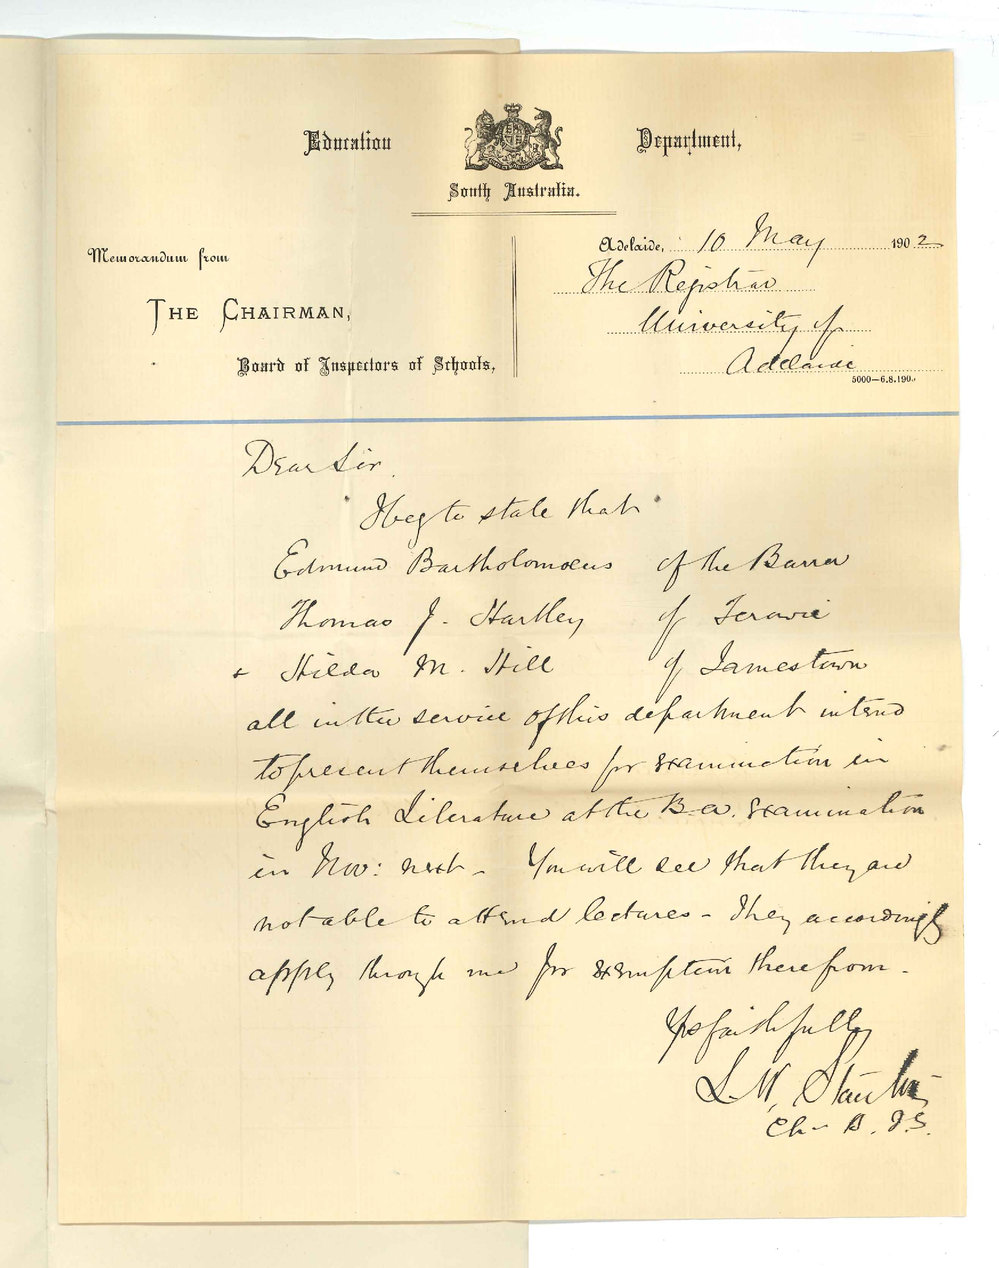 Education Department,
South Australia.
Memorandum from
THE CHAIRMAN,
Board of Inspectors of Schools.
Adelaide, 10 May 1902
The Registrar
University of
Adelaide
5000—6.8.190
Dear Sir,
I beg to state that
Edmund Bartholomaeus of the Barrea
Thomas J. Hartley of Terowie
+ Hilda M. Hill of Jamestown
all in the service of this department intend
to present themselves for examination in
English Literature at the B.A. examination
in Nov: next - You will see that they are
not able to attend lectures - They accordingly
apply through me for exemption therefrom -
Yrs faithfully
L. W. Stanton
Ch - B. I. S.